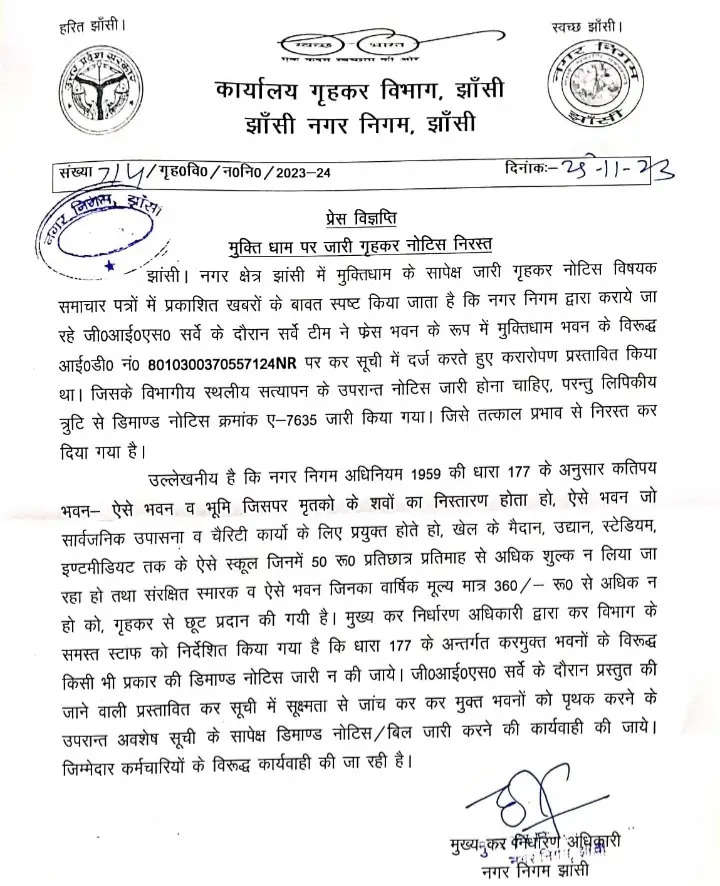 हरित झाँसी।
स्वच्छ झाँसी।
उत्तर प्रदेश सरकार
स्वच्छ भारत
एक कदम स्वच्छता की ओर
नगर निगम
झाँसी
कार्यालय गृहकर विभाग, झाँसी
झाँसी नगर निगम, झाँसी
संख्या 714/गृह0वि0/न0नि0/2023-24
दिनांकः-25-11-23
नगर निगम, झाँसी
प्रेस विज्ञप्ति
मुक्ति धाम पर जारी गृहकर नोटिस निरस्त
झांसी। नगर क्षेत्र झांसी में मुक्तिधाम के सापेक्ष जारी गृहकर नोटिस विषयक
समाचार पत्रों में प्रकाशित खबरों के बावत स्पष्ट किया जाता है कि नगर निगम द्वारा कराये जा
रहे जी0आई0एस0 सर्वे के दौरान सर्वे टीम ने फ्रेस भवन के रूप में मुक्तिधाम भवन के विरूद्ध
आई0डी0 नं0 8010300370557124NR पर कर सूची में दर्ज करते हुए करारोपण प्रस्तावित किया
था। जिसके विभागीय स्थलीय सत्यापन के उपरान्त नोटिस जारी होना चाहिए, परन्तु लिपिकीय
त्रुटि से डिमाण्ड नोटिस क्रमांक ए-7635 जारी किया गया। जिसे तत्काल प्रभाव से निरस्त कर
दिया गया है।
उल्लेखनीय है कि नगर निगम अधिनियम 1959 की धारा 177 के अनुसार कतिपय
भवन- ऐसे भवन व भूमि जिसपर मृतको के शवों का निस्तारण होता हो, ऐसे भवन जो
सार्वजनिक उपासना व चैरिटी कार्यो के लिए प्रयुक्त होते हो, खेल के मैदान, उद्यान, स्टेडियम,
इण्टमीडियट तक के ऐसे स्कूल जिनमें 50 रू0 प्रतिछात्र प्रतिमाह से अधिक शुल्क न लिया जा
रहा हो तथा संरक्षित स्मारक व ऐसे भवन जिनका वार्षिक मूल्य मात्र 360/- रू0 से अधिक न
हो को, गृहकर से छूट प्रदान की गयी है। मुख्य कर निर्धारण अधिकारी द्वारा कर विभाग के
समस्त स्टाफ को निर्देशित किया गया है कि धारा 177 के अन्तर्गत करमुक्त भवनों के विरूद्ध
किसी भी प्रकार की डिमाण्ड नोटिस जारी न की जाये। जी0आई0एस0 सर्वे के दौरान प्रस्तुत की
जाने वाली प्रस्तावित कर सूची में सूक्ष्मता से जांच कर कर मुक्त भवनों को पृथक करने के
उपरान्त अवशेष सूची के सापेक्ष डिमाण्ड नोटिस/बिल जारी करने की कार्यवाही की जाये।
जिम्मेदार कर्मचारियों के विरूद्ध कार्यवाही की जा रही है।
मुख्य कर निर्धारण अधिकारी
नगर निगम झांसी